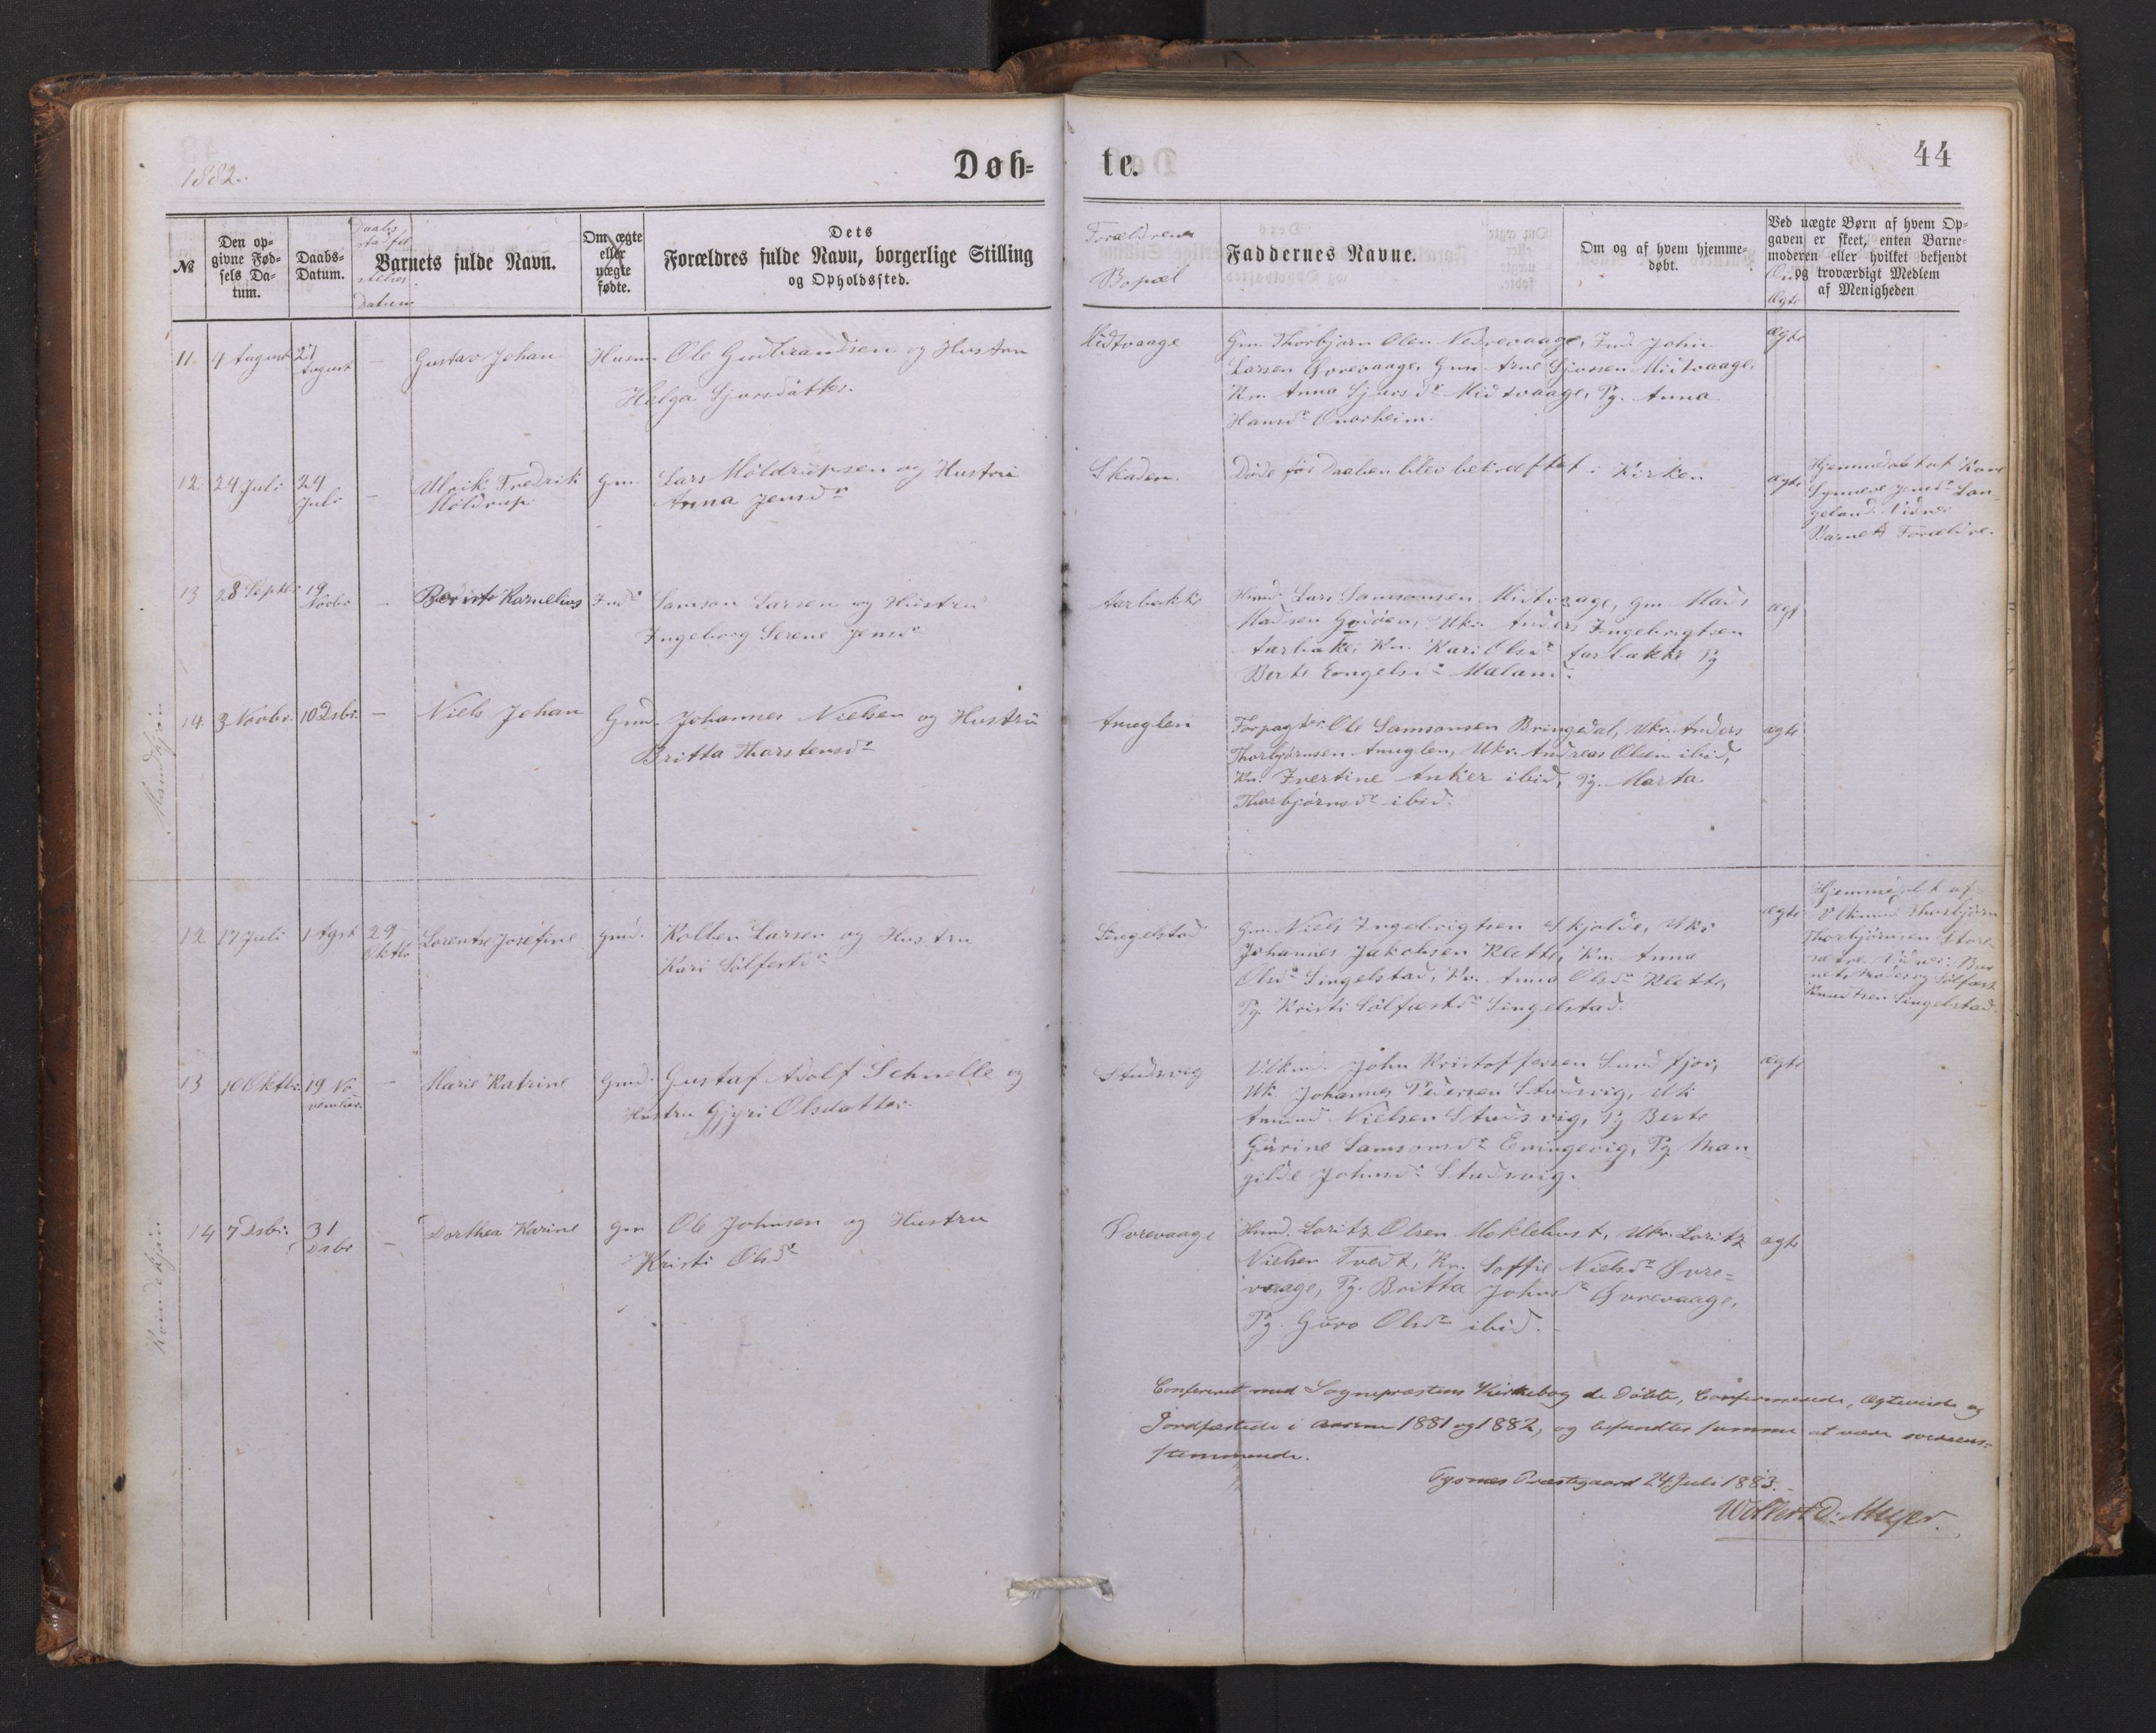 1882.
Døb=
te.
44
№
Den op=
givne Fød=
sels Da=
tum.
Daabs=
Datum.
Daabs
Datum
Barnets fulde Navn.
Om ægte
eller
uægte
fødte.
Dets
Forældres fulde Navn, borgerlige Stilling
og Opholdssted.
Forældrenes
Bopæl
Faddernes Navne.
Om og af hvem hjemme=
døbt.
Ved uægte Børn af hvem Op=
gaven er skeet, enten Barne=
moderen eller hvilket bekjendt
og troværdigt Medlem
af Menigheden.
Om
Ægte
Mandkjøn
11. 4 August 27 August — Gustav Johan Husm. Ole Gudbrandsen og Hustru
Helga Sjursdatter.
Midtvaage
Gm. Thorbjørn Olsen Nedrevaage, Ind. John
Larsen Øvrevaage, Gm. Arne Sjursen Midtvaage,
Kn. Anna Sjursdr Midtvaage, Pg. Anna
Hansdr Onarheim.
ægte
12. 24 Juli 24 Juli — Ulrik Fredrik
Møldrup
Gm. Lars Møldrupsen og Hustru
Anna Jensdr
Skaden.
Døde før Daaben blev bekræftet i Kirken
ægte
Hjemmedøbt af Kone
Synneve Jensdr Lan-
geland. Vidner
Barnets Forældre.
13 28 Septbr 19 Novbr — Bernt Kornelius Inds Samson Larsen og Hustru
Ingeborg Serene Jensdr
Aarbakke
Husmd Lars Samsonsen Midtvaage, Gm. Mads
Madsen Godøen, Ukr. Anders Ingebrigtsen
Aarbakke, Kn. Kari Olsdr Aarbakke Pg
Berte Engelsdr Maland.
ægt
14. 3 Novbr. 10 Dsbr. — Niels Johan Gmd. Johannes Nielsen og Hustru
Britta Tharstensdr
Amuglen
Forpagter Ole Samsonsen Bringedal, Ukr. Anders
Thorbjørnsen Amuglen, Ukr. Andreas Olsen ibid,
Kn. Ivertine Anker ibid, Pg. Marta
Thorbjørnsdr ibid.
ægte
Kvindekjøn
12 17 Juli 1 Agst 29 Oktbr Lorentse Josefine Gmd. Kolben Larsen og Hustru
Kari Sølfestdr
Singelstad
Gm. Niels Ingebrigtsen Skjolde, Ukr
Johannes Jakobsen Klette, Kn. Anna
Olsdr Singelstad, Kn. Anna Olsdr Klette,
Pg. Kristi Sølfestdr Singelstad.
ægte
Hjemmedøbt af
Thorbjørn
Thorbjørnsen Store-
Vidner: Bar-
nets Moder og Sølfest
Knudtsen Singelstad.
13 10 Oktbr. 19 No
vember. — Marie Katrine Gmd. Gustaf Adolf Schnelle og
Hustru Gjyri Olsdatter.
Studsvig
John Kristoffersen Sundfjor,
Uk. Johannes Pedersen Studsvig, Uk
Amund Nielsen Studsvig, Pg Berte
Gurine Samsonsdr Eningevig, Pg. Man-
gilde Johnsdr Studsvig.
ægte
14 7 Dsbr. 31 Dsbr — Dorthea Karine Gm Ole Johnsen og Hustru
Kristi Olsdr
Øvrevaage
Husmd. Loritz Olsen Moklebust, Ukr. Loritz
Nielsen Tvedt, Kn. Soffie Nielsdr Øvre=
vaage, Pg. Britta Johnsdr Øvrevaage,
Pg. Guro Olsdr ibid.
ægte
Confereret med Sognepræstens Kirkebog de Døbte, Confirmerede, Ægteviede og
Jordfæstede i Aarene 1881 og 1882, og befandtes samme at være overens=
stemmende.
Tysnes Præstegaard 24 Juli 1883.
Wollert D. Meyer.